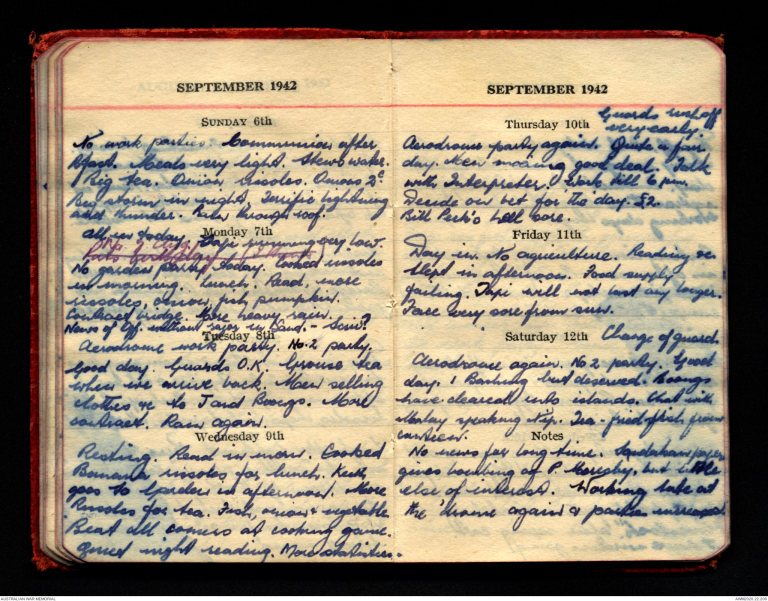 SEPTEMBER 1942
SUNDAY 6th
No work parties. Communion after
Bfast. Meals very light. Stews water.
Big tea. Onion rissoles. Onions 2c
Big storm in night, Terrific lightning
and thunder. Rain through roof.
Monday 7th
All in today. Tapi running very low.
No garden party today. Cooked rissoles
in morning. Lunch. Read, more
rissoles, onion, fish pumpkin.
Contract bridge. More heavy rain.
News of Eff. without razor in hand. -
Tuesday 8th
Aerodrome work party. No. 2 party.
Good day. Guards O.K. Grouse tea
when we arrive back. Men selling
clothes &c to J and Boongs. More
contract. Rain again.
Wednesday 9th
Resting. Read in morn. Cooked
Banana rissoles for lunch. Keith
goes to Garden in afternoon. More
Rissoles for tea. Fish, onion & vegetable.
Beat all comers at cooking game.
Quiet night reading. More statistics.
SEPTEMBER 1942
Thursday 10th
Guards
very early.
Aerodrome party again. Quite a fair
day. Men moaning good deal. Talk
with Interpreter. Work till 6 p.m.
Decide our bet for the day. £2.
Bill Peck's sore.
Friday 11th
Day in. No agriculture. Reading &c
Slept in afternoon. Food supply
failing. Tapi will not last any longer.
Face very sore from sun.
Saturday 12th
Change of guard.
Aerodrome again. No 2 party. Good
day. 1 Bashing but deserved. Boongs
have cleared into islands. Chat with
Malay speaking Nip. Tea - fried fish from
canteen.
Notes
No news for long time. paper
gives bombing of P. Moresby, but little
else of interest. Working late at
the drome again & parties increased.
AUSTRALIAN WAR MEMORIAL